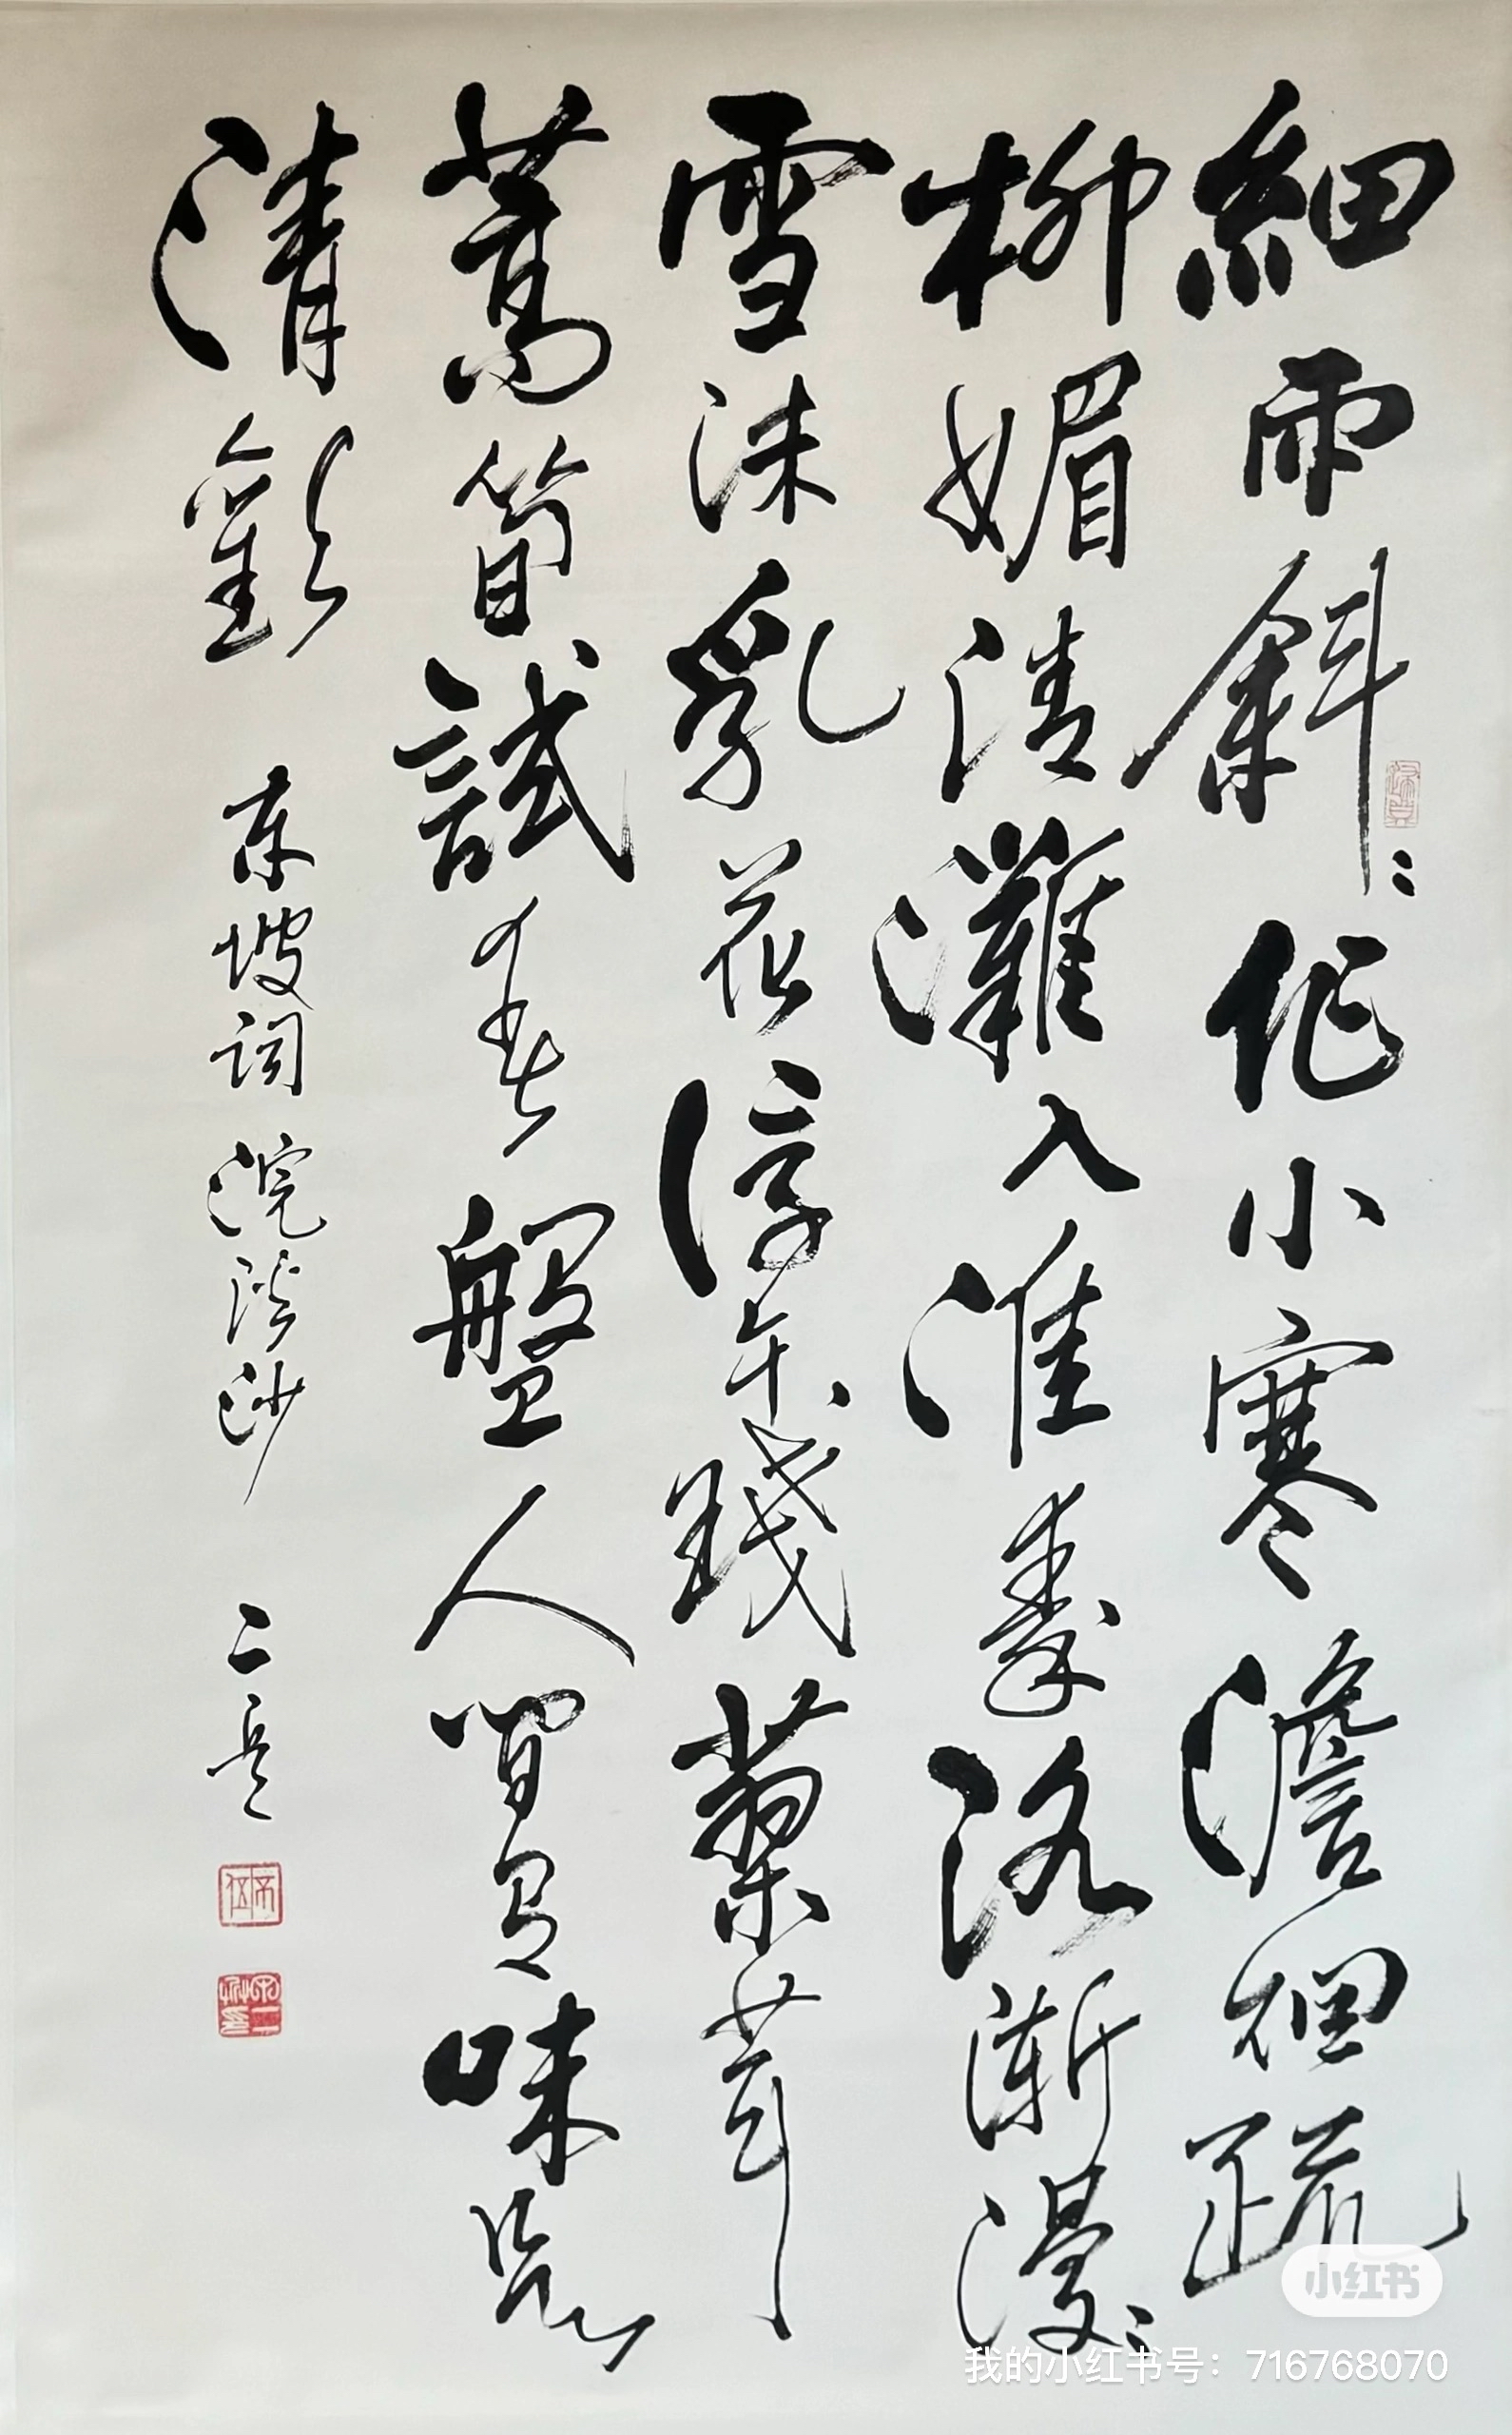 細雨斜〻作小寒澹煙疏
柳媚清灘入淮洛漸漫〻
雪沫乳花淳午琖蓼茸
蒿筍試春盤人間有味是
清歡
东坡词 浣溪沙 二
小红书
我的小红书号：716768070